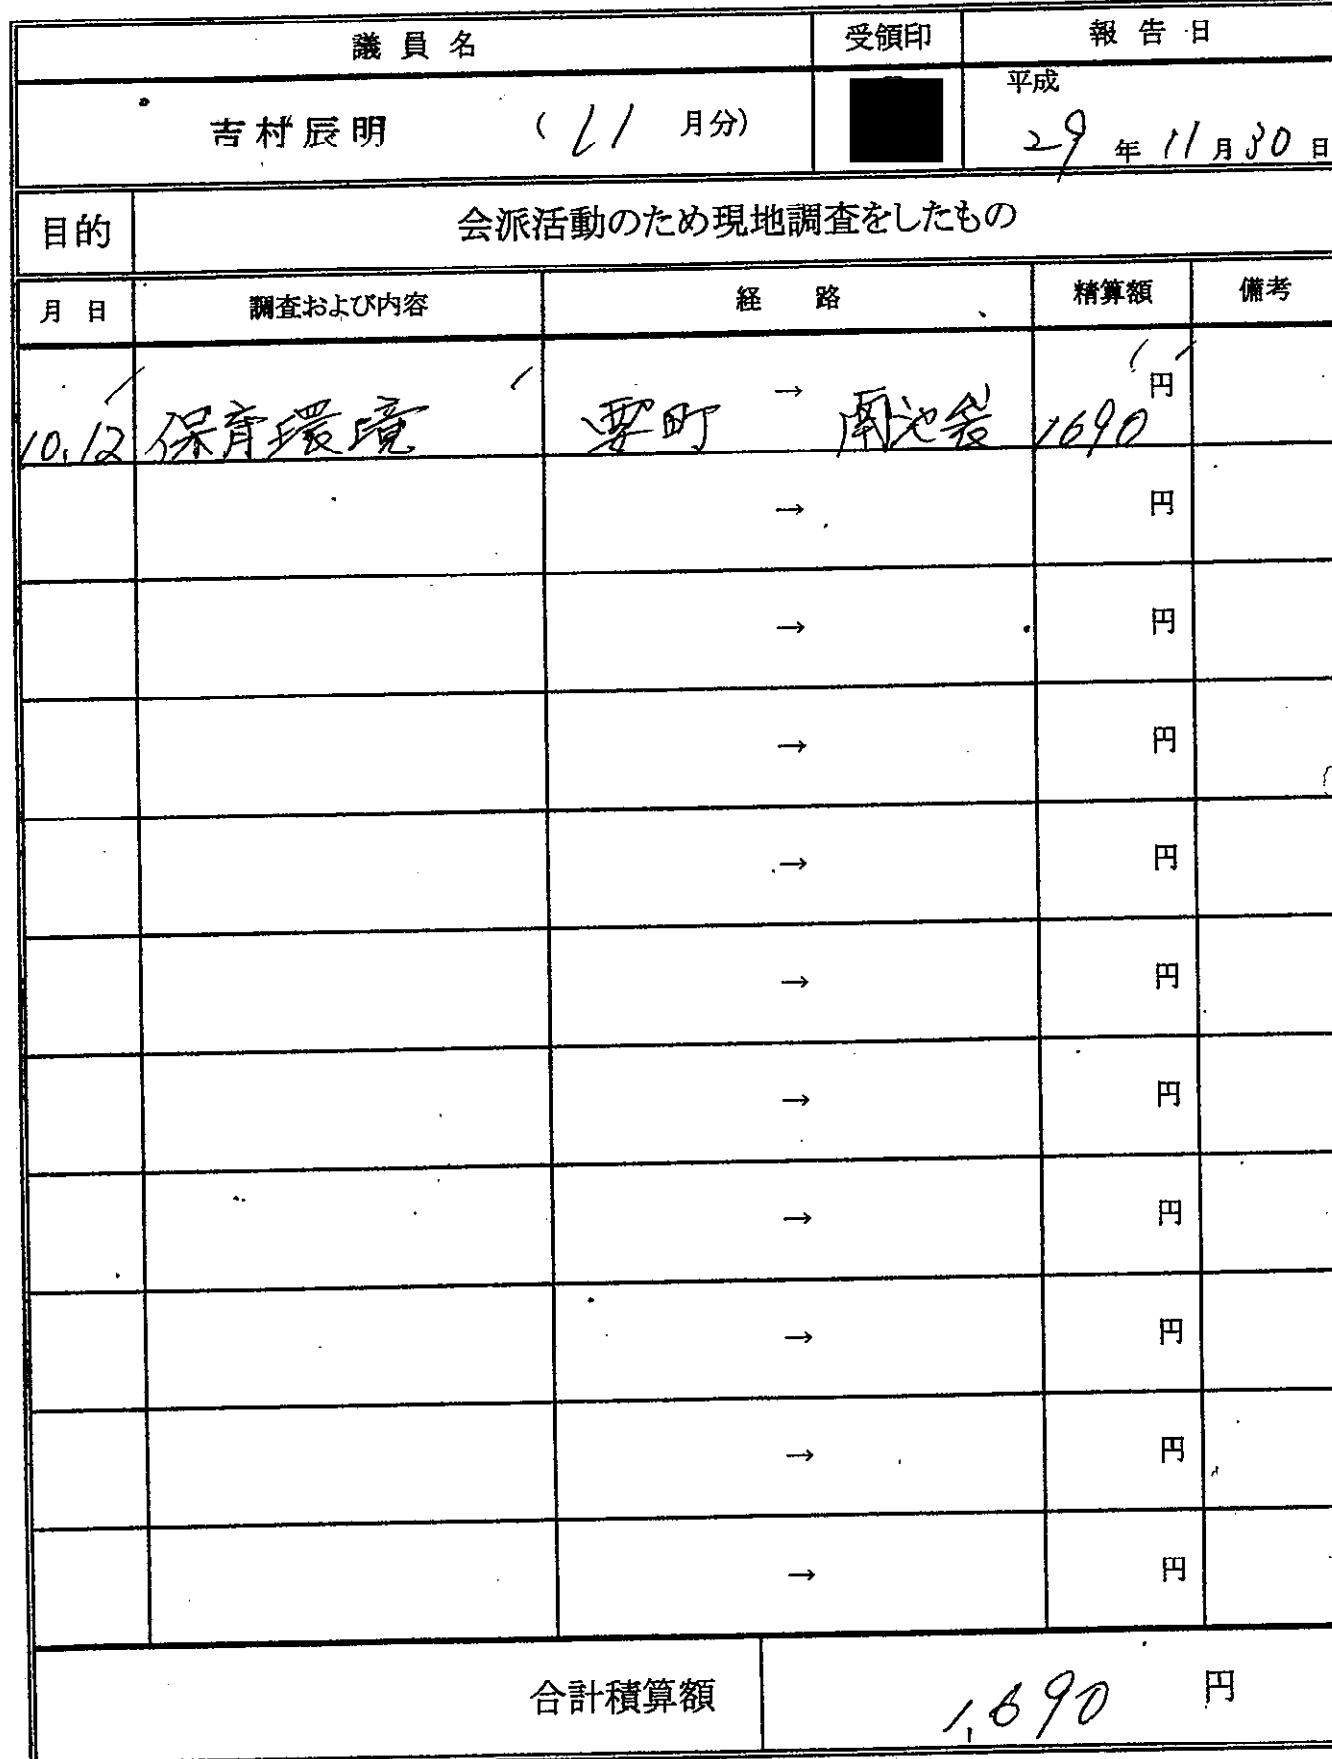 議員名 受領印 報告日
吉村辰明 (11月分) 平成29年11月30日
目的 会派活動のため現地調査をしたもの
月日 調査および内容 経路 精算額 備考
10.12 保育環境 要町 → 南池袋 1690円
→ 円
→ 円
→ 円
→ 円
→ 円
→ 円
→ 円
→ 円
→ 円
→ 円
合計積算額 1,690円